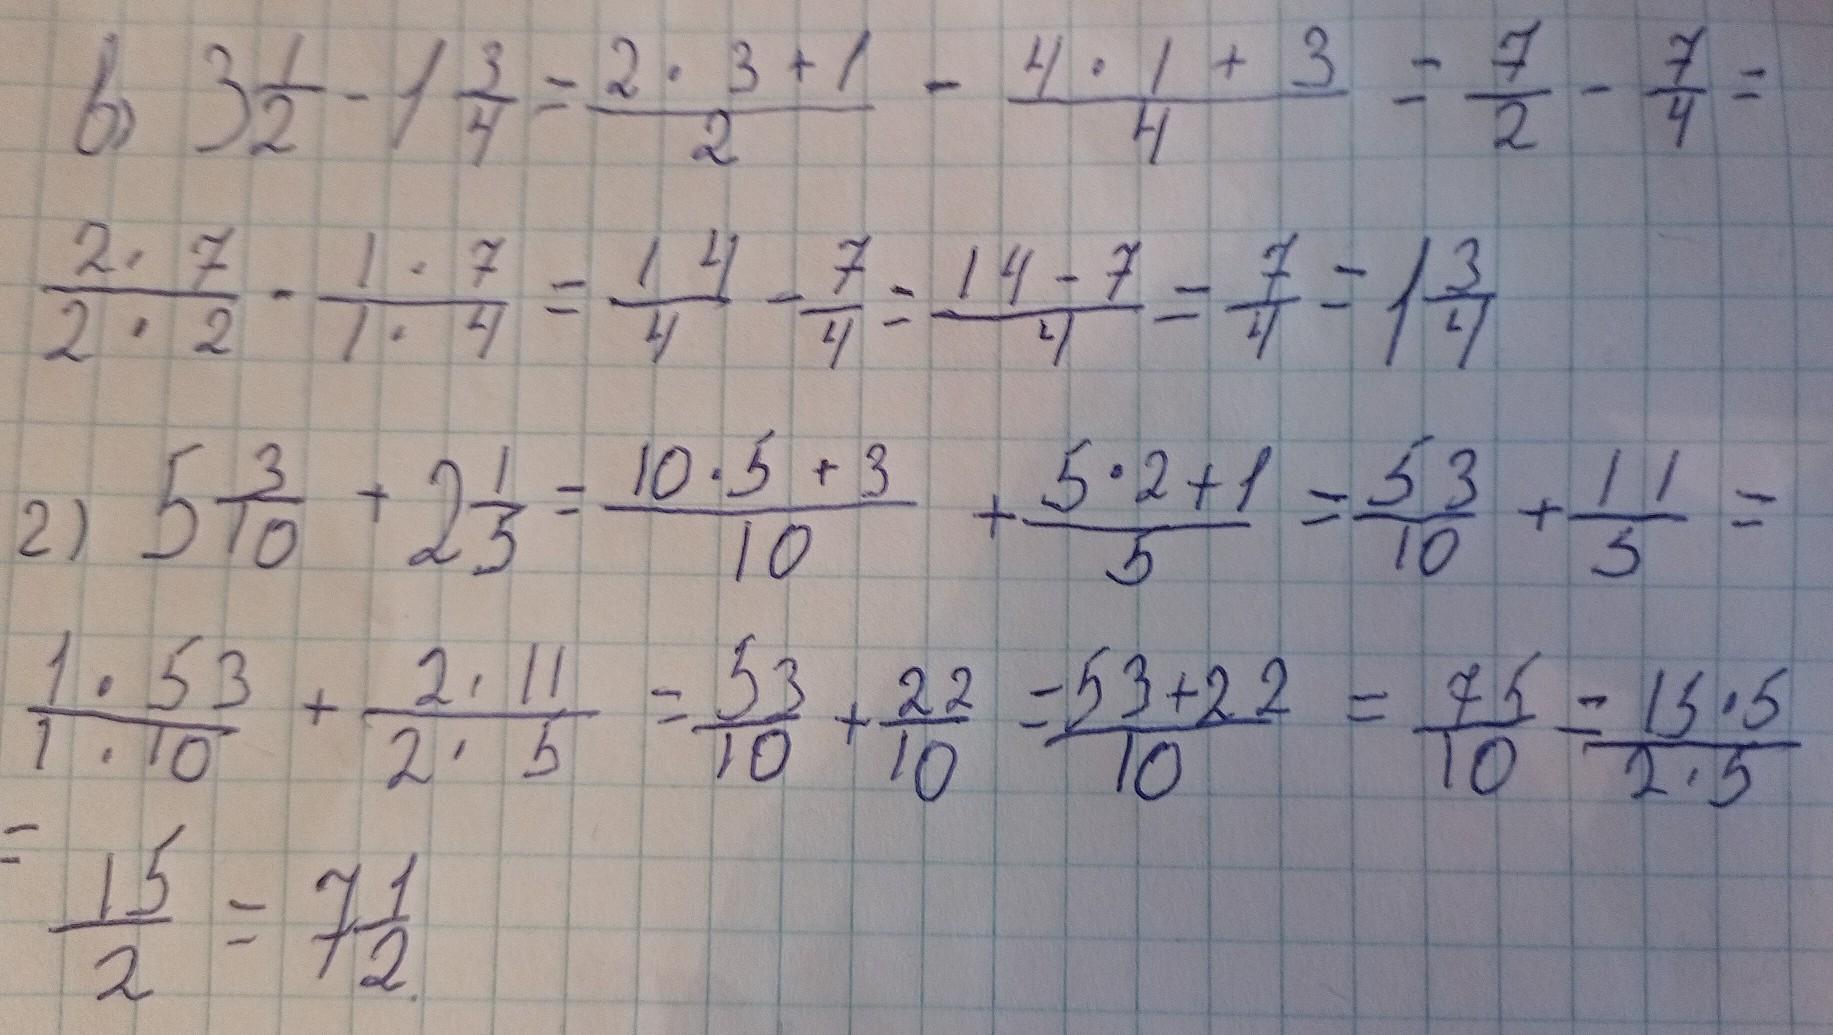 в) 3 1/2 - 1 3/4 = (2 · 3 + 1)/2 - (4 · 1 + 3)/4 = 7/2 - 7/4 =
(2 · 7)/(2 · 2) - (1 · 7)/(1 · 4) = 14/4 - 7/4 = (14 - 7)/4 = 7/4 = 1 3/4
г) 5 3/10 + 2 1/5 = (10 · 5 + 3)/10 + (5 · 2 + 1)/5 = 53/10 + 11/5 =
(1 · 53)/(1 · 10) + (2 · 11)/(2 · 5) = 53/10 + 22/10 = (53 + 22)/10 = 75/10 = (15 · 5)/(2 · 5)
= 15/2 = 7 1/2.